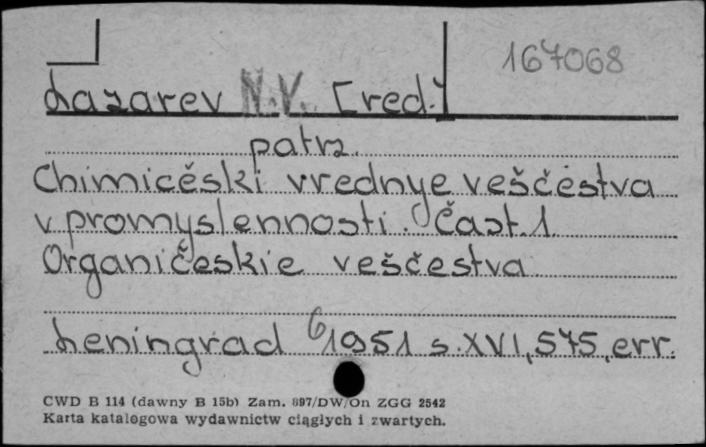 167068
Lazarev N.V. [red.]
patrz
Chimicéski vrednye veščestva
v promyslennosti. Čast. 1
Organičeskie veščestva
Leningrad 1951 s. XVI, 575, err.
CWD B 114 (dawny B 15b) Zam. 897/DW/On ZGG 2542
Karta katalogowa wydawnictw ciągłych i zwartych.